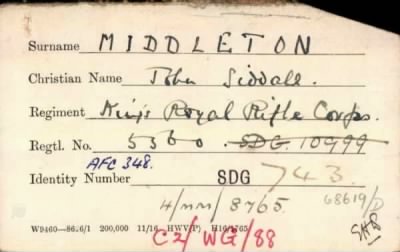 Surname MIDDLETON
Christian Name John Siddall.
Regiment King's Royal Rifle Corps.
Regtl. No. 5360. SDG 10999
AFC 348.
Identity Number SDG 743
4/MM/8765. 68619/D
W9460—8626/1 200,000 11/16 HWV(P) H16/1765
C2/WG/88